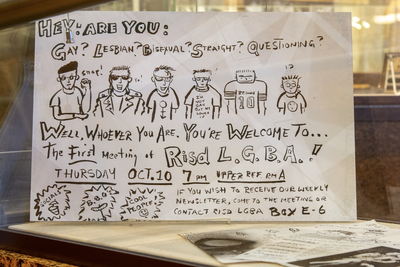 HEY- ARE YOU:
GAY? LESBIAN? BISEXUAL? STRAIGHT? QUESTIONING?
WELL, WHOEVER YOU ARE. YOU'RE WELCOME TO...
The First Meeting of RISD L.G.B.A.!
THURSDAY OCT.10 7PM UPPER REF RM A
IF YOU WISH TO RECEIVE OUR WEEKLY
NEWSLETTER, COME TO THE MEETING OR
CONTACT RISD LGBA BOX E-6
COOL
PEOPLE!